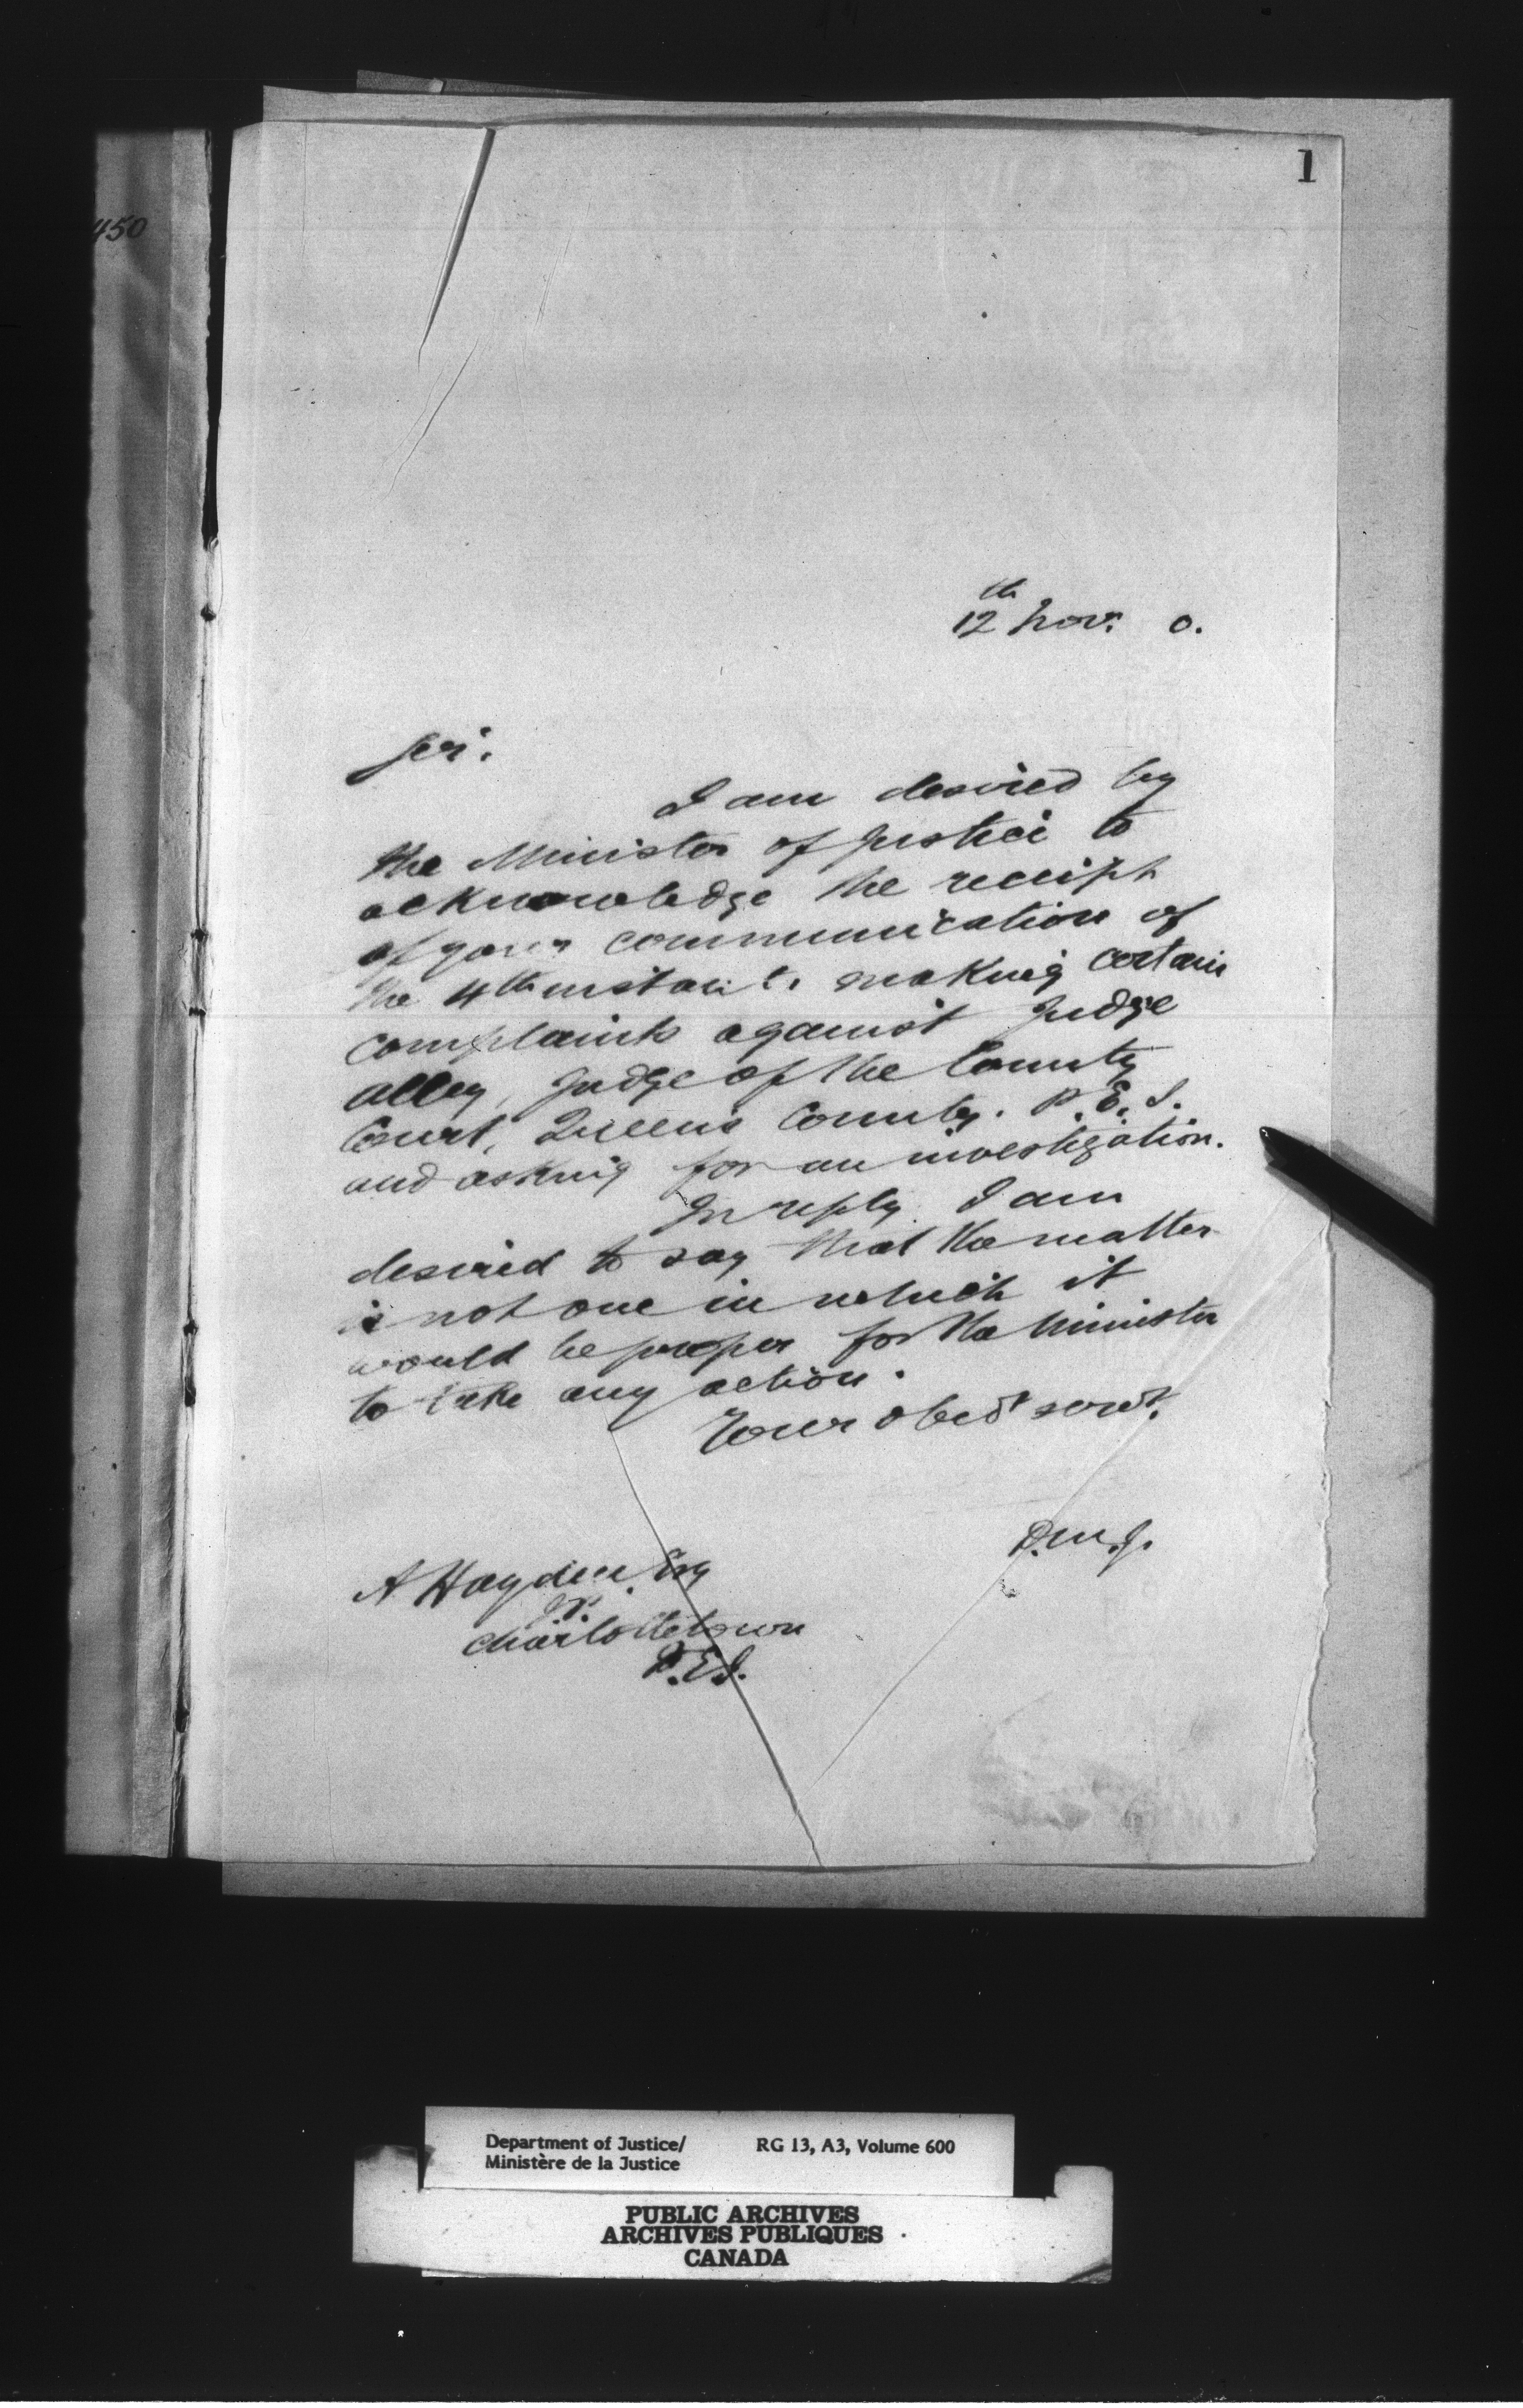 1
450
12th Nov. 0.
Sir.
I am desired by
the Minister of Justice to
acknowledge the receipt
of your communication of
the 4th instant. making certain
complaints against Judge
Alley, Judge of the County
Court, Queen's County. P.E.I.
and asking for an investigation.
In reply I am
desired to say that the matter
is not one in which it
would be proper for the Minister
to take any action.
Your obedt servt.
D.M.J.
A Hayden, Esq
J.P.
Charlottetown
P.E.I.
Department of Justice/ RG 13, A3, Volume 600
Ministère de la Justice
PUBLIC ARCHIVES
ARCHIVES PUBLIQUES
CANADA